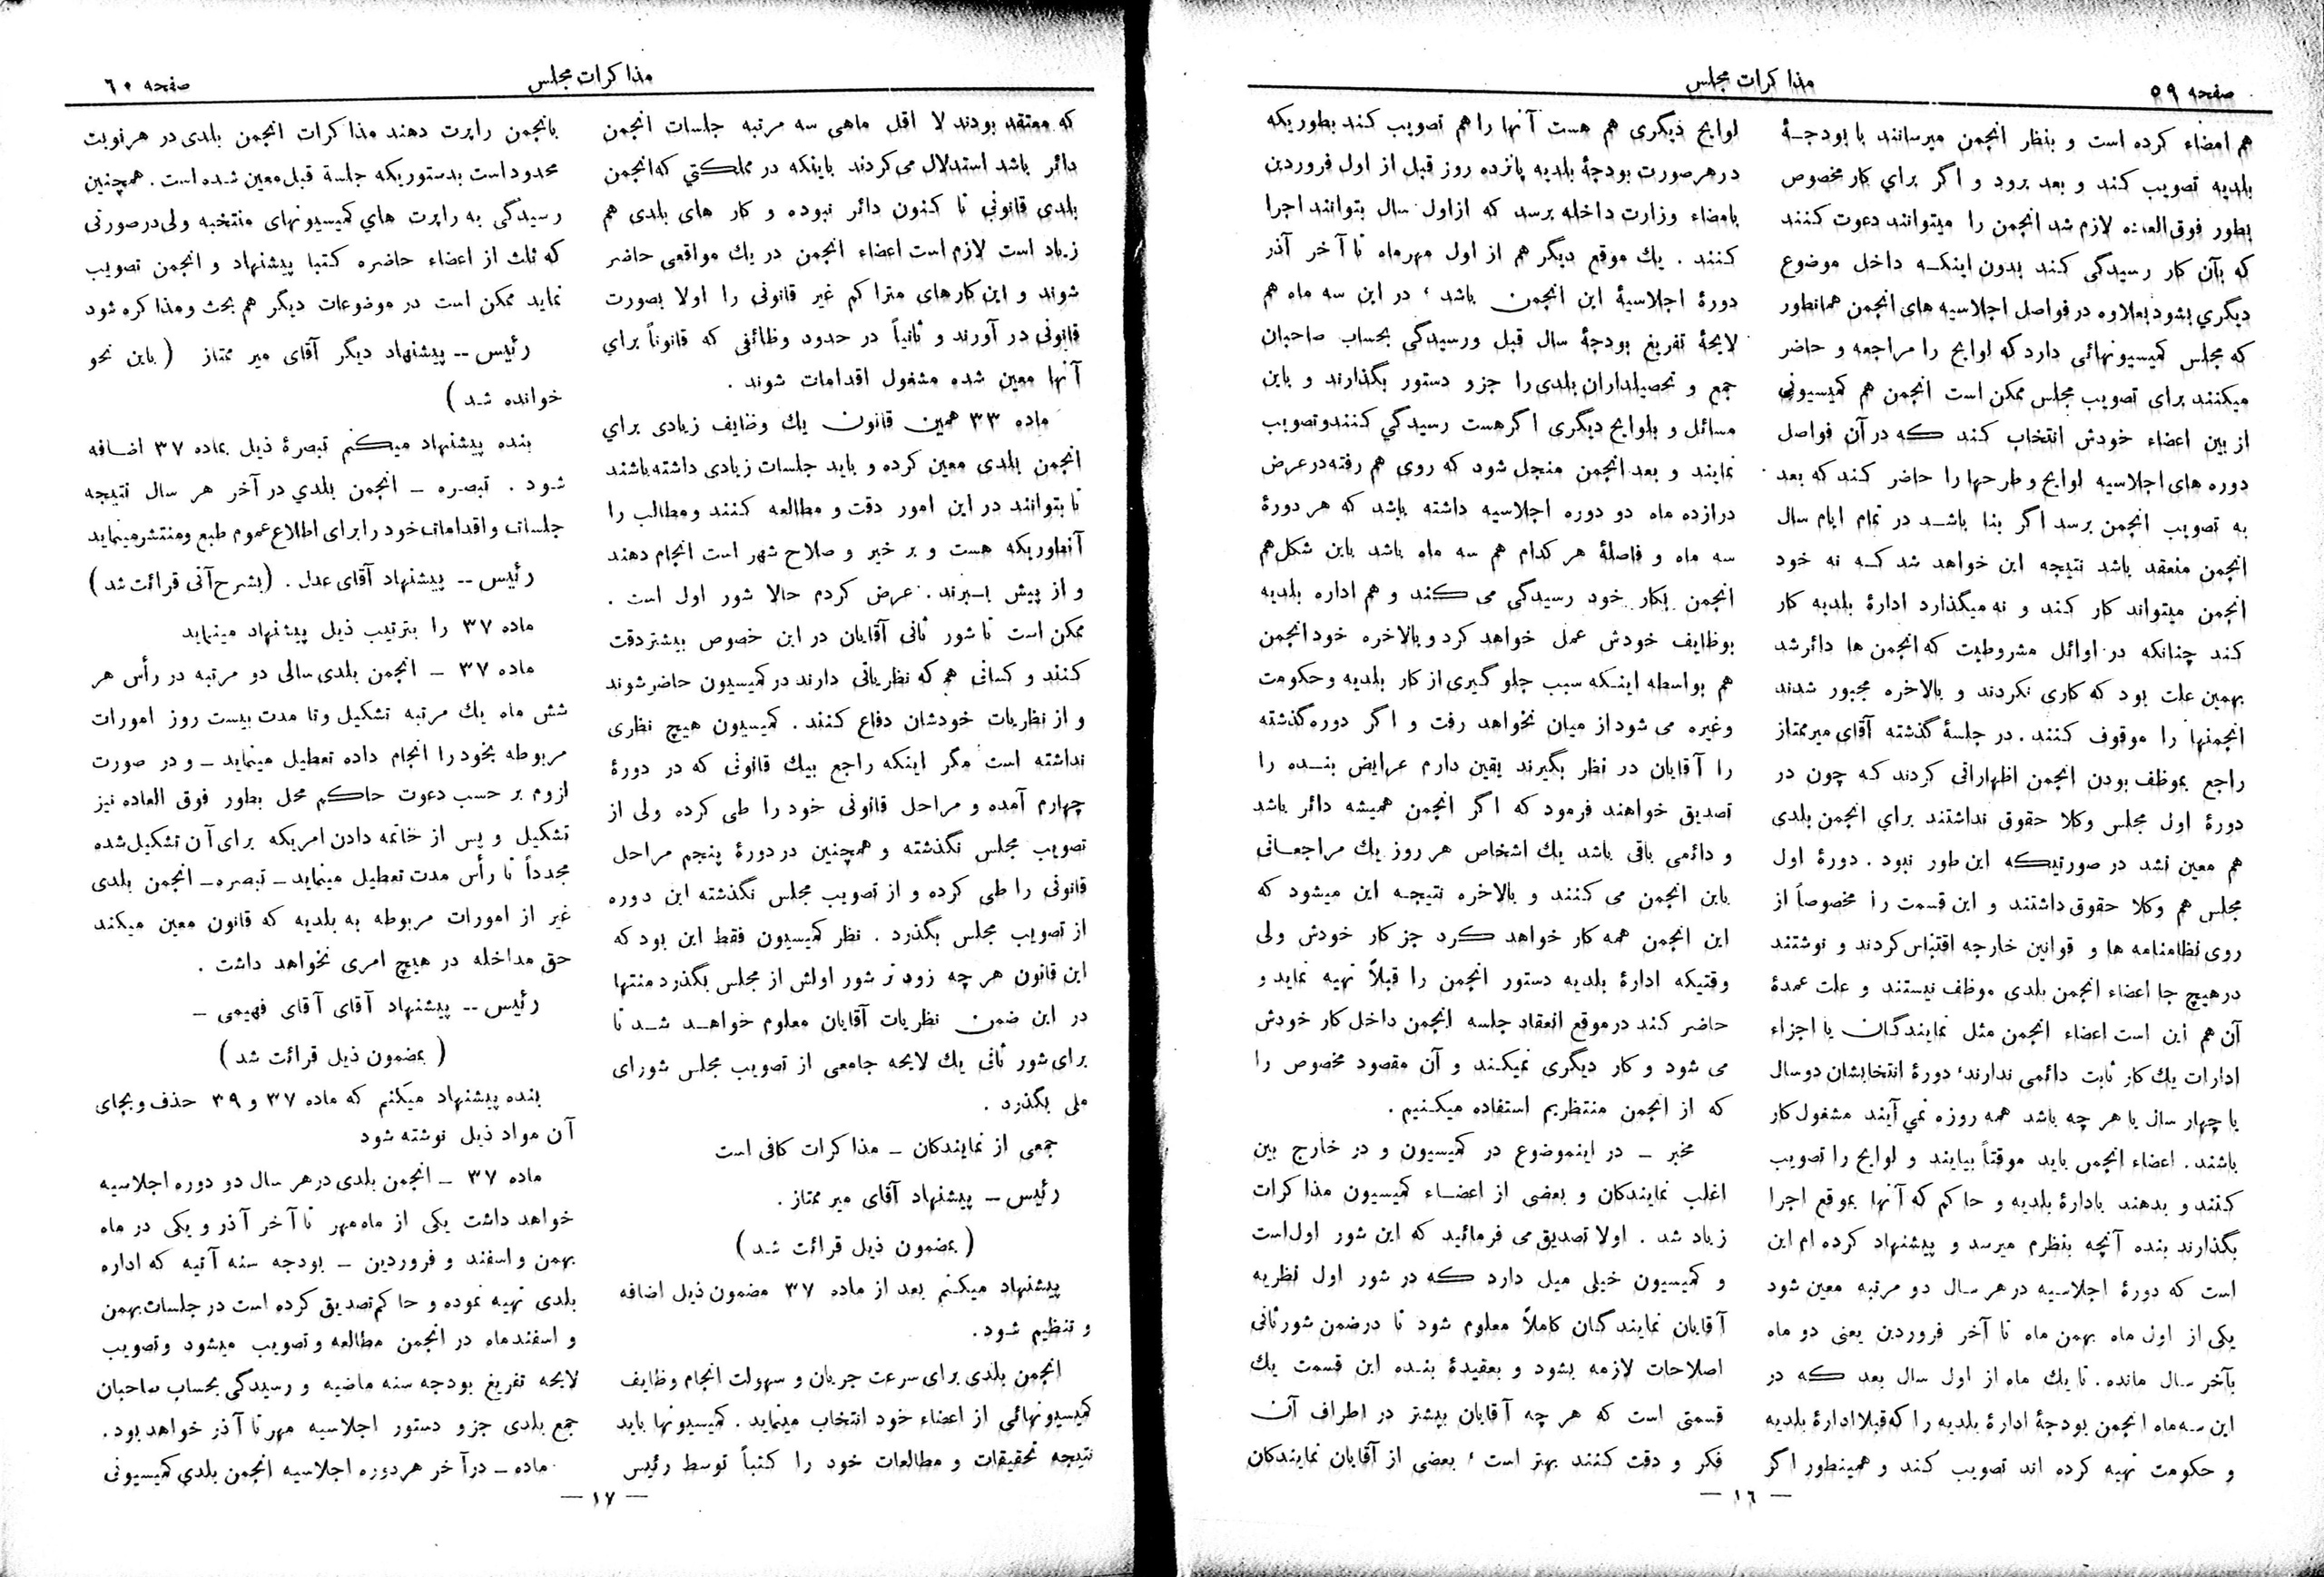 صفحه ۵۹
مذاکرات مجلس
هم امضاء کرده است و بنظر انجمن میرسانند با بودجهٔ
بلدیه تصویب کند و بعد برود و اگر برای کار مخصوص
بطور فوق‌العاده لازم شد انجمن را میتوانند دعوت کنند
که بآن کار رسیدگی کند بدون اینکه داخل موضوع
دیگری بشود بعلاوه در فواصل اجلاسیه های انجمن همانطور
که مجلس کمیسیونهائی دارد که لوایح را مراجعه و حاضر
میکنند برای تصویب مجلس ممکن است انجمن هم کمیسیونی
از بین اعضاء خودش انتخاب کند که در آن فواصل
دوره های اجلاسیه لوایح و طرحها را حاضر کند که بعد
به تصویب انجمن برسد اگر بنا باشد در تمام ایام سال
انجمن منعقد باشد نتیجه این خواهد شد که نه خود
انجمن میتواند کار کند و نه میگذارد ادارهٔ بلدیه کار
کند چنانکه در اوائل مشروطیت که انجمن ها دائر شد
بهمین علت بود که کاری نکردند و بالاخره مجبور شدند
انجمنها را موقوف کنند . در جلسهٔ گذشته آقای میرممتاز
راجع بموظف بودن انجمن اظهاراتی کردند که چون در
دورهٔ اول مجلس وکلا حقوق نداشتند برای انجمن بلدی
هم معین نشد در صورتیکه این طور نبود . دورهٔ اول
مجلس هم وکلا حقوق داشتند و این قسمت را مخصوصاً از
روی نظامنامه ها و قوانین خارجه اقتباس کردند و نوشتند
در هیچ جا اعضاء انجمن بلدی موظف نیستند و علت عمدهٔ
آن هم این است اعضاء انجمن مثل نمایندگان یا اجزاء
ادارات یک کار ثابت دائمی ندارند، دورهٔ انتخابشان دو سال
یا چهار سال یا هر چه باشد همه روزه نمی آیند مشغول کار
باشند . اعضاء انجمن باید موقتاً بیایند و لوایح را تصویب
کنند و بدهند بادارهٔ بلدیه و حاکم که آنها بموقع اجرا
بگذارند بنده آنچه بنظرم میرسد و پیشنهاد کرده ام این
است که دورهٔ اجلاسیه در هر سال دو مرتبه معین شود
یکی از اول ماه بهمن ماه تا آخر فروردین یعنی دو ماه
بآخر سال مانده . تا یک ماه از اول سال بعد که در
این سه ماه انجمن بودجهٔ ادارهٔ بلدیه را که قبلا ادارهٔ بلدیه
و حکومت تهیه کرده اند تصویب کند و همینطور اگر
لوایح دیگری هم هست آنها را هم تصویب کند بطوریکه
در هر صورت بودجهٔ بلدیه پانزده روز قبل از اول فروردین
بامضاء وزارت داخله برسد که از اول سال بتوانند اجرا
کنند . یک موقع دیگر هم از اول مهر ماه تا آخر آذر
دورهٔ اجلاسیهٔ این انجمن باشد ، در این سه ماه هم
لایحهٔ تفریغ بودجهٔ سال قبل و رسیدگی بحساب صاحبان
جمع و تحصیلداران بلدی را جزو دستور بگذارند و باین
مسائل و بلوایح دیگری اگر هست رسیدگی کنند و تصویب
نمایند و بعد انجمن منحل شود که روی هم رفته در عرض
دوازده ماه دو دوره اجلاسیه داشته باشد که هر دورهٔ
سه ماه و فاصلهٔ هر کدام هم سه ماه باشد باین شکل هم
انجمن بکار خود رسیدگی می کند و هم اداره بلدیه
بوظایف خودش عمل خواهد کرد و بالاخره خود انجمن
هم بواسطه اینکه سبب جلوگیری از کار بلدیه و حکومت
وغیره می شود از میان نخواهد رفت و اگر دوره گذشته
را آقایان در نظر بگیرند یقین دارم عرایض بنده را
تصدیق خواهند فرمود که اگر انجمن همیشه دائر باشد
و دائمی باقی باشد یک اشخاص هر روز یک مراجعاتی
باین انجمن می کنند و بالاخره نتیجه این میشود که
این انجمن همه کار خواهد کرد جز کار خودش ولی
وقتیکه ادارهٔ بلدیه دستور انجمن را قبلاً تهیه نماید و
حاضر کند در موقع انعقاد جلسه انجمن داخل کار خودش
می شود و کار دیگری نمیکند و آن مقصود مخصوص را
که از انجمن منتظریم استفاده میکنیم .
مخبر ـ در اینموضوع در کمیسیون و در خارج بین
اغلب نمایندگان و بعضی از اعضاء کمیسیون مذاکرات
زیاد شد . اولا تصدیق می فرمائید که این شور اول است
و کمیسیون خیلی میل دارد که در شور اول نظریه
آقایان نمایندگان کاملاً معلوم شود تا در ضمن شور ثانی
اصلاحات لازمه بشود و بعقیدهٔ بنده این قسمت یک
قسمتی است که هر چه آقایان بیشتر در اطراف آن
فکر و دقت کنند بهتر است ، بعضی از آقایان نمایندگان
— ۱۶ —
مذاکرات مجلس
صفحه ۶۰
که معتقد بودند لا اقل ماهی سه مرتبه جلسات انجمن
دائر باشد استدلال می کردند باینکه در مملکتی که انجمن
بلدی قانونی تا کنون دائر نبوده و کار های بلدی هم
زیاد است لازم است اعضاء انجمن در یک مواقعی حاضر
شوند و این کارهای متراکم غیر قانونی را اولا بصورت
قانونی در آورند و ثانیاً در حدود وظائفی که قانوناً برای
آنها معین شده مشغول اقدامات شوند .
ماده ۳۳ همین قانون یک وظایف زیادی برای
انجمن بلدی معین کرده و باید جلسات زیادی داشته باشند
تا بتوانند در این امور دقت و مطالعه کنند و مطالب را
آنطوریکه هست و بر خیر و صلاح شهر است انجام دهند
و از پیش ببرند . عرض کردم حالا شور اول است .
ممکن است تا شور ثانی آقایان در این خصوص بیشتر دقت
کنند و کسانی هم که نظریاتی دارند در کمیسیون حاضر شوند
و از نظریات خودشان دفاع کنند . کمیسیون هیچ نظری
نداشته است مگر اینکه راجع بیک قانونی که در دورهٔ
چهارم آمده و مراحل قانونی خود را طی کرده ولی از
تصویب مجلس نگذشته و همچنین در دورهٔ پنجم مراحل
قانونی را طی کرده و از تصویب مجلس نگذشته این دوره
از تصویب مجلس بگذرد . نظر کمیسیون فقط این بود که
این قانون هر چه زود تر شور اولش از مجلس بگذرد منتها
در این ضمن نظریات آقایان معلوم خواهد شد تا
برای شور ثانی یک لایحه جامعی از تصویب مجلس شورای
ملی بگذرد .
جمعی از نمایندگان ـ مذاکرات کافی است
رئیس ـ پیشنهاد آقای میر ممتاز .
( بمضمون ذیل قرائت شد )
پیشنهاد میکنم بعد از ماده ۳۷ مضمون ذیل اضافه
و تنظیم شود .
انجمن بلدی برای سرعت جریان و سهولت انجام وظایف
کمیسیونهائی از اعضاء خود انتخاب مینماید . کمیسیونها باید
نتیجه تحقیقات و مطالعات خود را کتباً توسط رئیس
بانجمن راپرت دهند مذاکرات انجمن بلدی در هر نوبت
محدود است بدستوریکه جلسهٔ قبل معین شده است . همچنین
رسیدگی به راپرت های کمیسیونهای منتخبه ولی در صورتی
که ثلث از اعضاء حاضره کتبا پیشنهاد و انجمن تصویب
نماید ممکن است در موضوعات دیگر هم بحث و مذاکره شود
رئیس ـ پیشنهاد دیگر آقای میر ممتاز ( باین نحو
خوانده شد )
بنده پیشنهاد میکنم تبصرهٔ ذیل بماده ۳۷ اضافه
شود . تبصره ـ انجمن بلدی در آخر هر سال نتیجه
جلسات و اقدامات خود را برای اطلاع عموم طبع و منتشر مینماید
رئیس ـ پیشنهاد آقای عدل . (بشرح آتی قرائت شد )
ماده ۳۷ را بترتیب ذیل پیشنهاد مینماید
ماده ۳۷ ـ انجمن بلدی سالی دو مرتبه در رأس هر
شش ماه یک مرتبه تشکیل و تا مدت بیست روز امورات
مربوطه بخود را انجام داده تعطیل مینماید ـ و در صورت
لزوم بر حسب دعوت حاکم محل بطور فوق العاده نیز
تشکیل و پس از خاتمه دادن امریکه برای آن تشکیل شده
مجدداً تا رأس مدت تعطیل مینماید ـ تبصره ـ انجمن بلدی
غیر از امورات مربوطه به بلدیه که قانون معین میکند
حق مداخله در هیچ امری نخواهد داشت .
رئیس ـ پیشنهاد آقای آقای فهیمی ـ
( بمضمون ذیل قرائت شد )
بنده پیشنهاد میکنم که ماده ۳۷ و ۳۹ حذف و بجای
آن مواد ذیل نوشته شود
ماده ۳۷ ـ انجمن بلدی در هر سال دو دوره اجلاسیه
خواهد داشت یکی از ماه مهر تا آخر آذر و یکی در ماه
بهمن و اسفند و فروردین ـ بودجه سنه آتیه که اداره
بلدی تهیه نموده و حاکم تصدیق کرده است در جلسات بهمن
و اسفند ماه در انجمن مطالعه و تصویب میشود و تصویب
لایحه تفریغ بودجه سنه ماضیه و رسیدگی بحساب صاحبان
جمع بلدی جزو دستور اجلاسیه مهر تا آذر خواهد بود .
ماده ـ در آخر هر دوره اجلاسیه انجمن بلدی کمیسیونی
— ۱۷ —